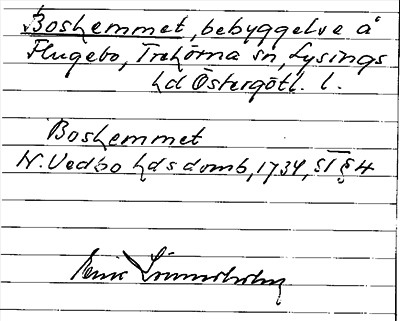 Boshemmet, bebyggelse å
Flugebo, Trehörna sn, Lysings
hd Östergötl. l.
Boshemmet
N. Vedbo hds domb, 1734, s1 § 4